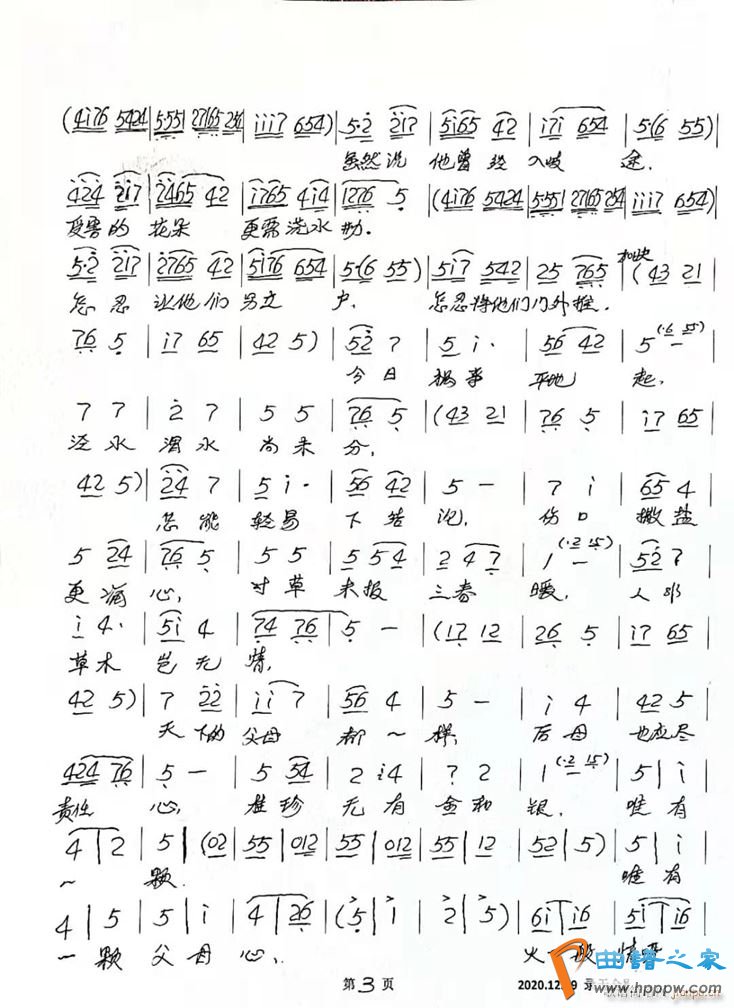 (4i76 5424 | 5·551 2765 254 | iii7 654) | 5·2 217 | 5i65 42 | i7i 654 | 5·(6 55) |
虽然说 他曾经 入歧 途.
424 217 | 2465 42 | i765 4i4 | 1276 5 | (4i76 5424 | 5·551 2765 254 | iii7 654) |
受害的 花朵 更需浇水
5·2 217 | 2765 42 | 5i76 654 | 5·(6 55) | 5i7 542 | 25 765 | (43 21 |
加快
怎忍 让他们 另立 户. 怎忍将他们门外推.
76 5 | i7 65 | 42 5) | 52 7 | 5 i· | 56 42 | 5 (·6 55) – |
今日 祸事 平地 起.
7 7 | 2 7 | 5 5 | 76 5 | (43 21 | 76 5 | i7 65 |
泾水 浑水 尚未 分.
42 5) | 24 7 | 5 i· | 56 42 | 5 – | 7 i | 65 4 |
怎能 轻易 下结 论. 伤口 撒盐
5 24 | 76 5 | 5 5 | 5 54 | 2 47 | 1 (·2 15) – | 52 7 |
更痛 心. 寸草 未报 三春 暖. 人非
i 4· | 5i 4 | 74 76 | 5 – | (17 12 | 26 5 | i7 65 |
草木 岂无 情.
42 5) | 7 22 | ii 7 | 56 4 | 5 – | i 4 | 42 5 |
天下的 父母 都一 样, 后母 也应尽
424 76 | 5 – | 5 54 | 2 i4 | 7 2 | 1 (·2 15) – | 5 | i |
责任 心, 桂珍 无有 金和 银. 唯有
4 | 2 | 5 | (02 | 55 | 012 | 55 | 012 | 55 | 12 | 52 | 5) | 5 | i |
一 颗. 唯有
4 | 5 | 5 | i | 4 | 26 | (5 | 1 | 2 | 5) | 6i | i6 | 5i | i6 |
一颗父母心. 火一般
第3页
2020.12
曲谱之家
www.hppw.com